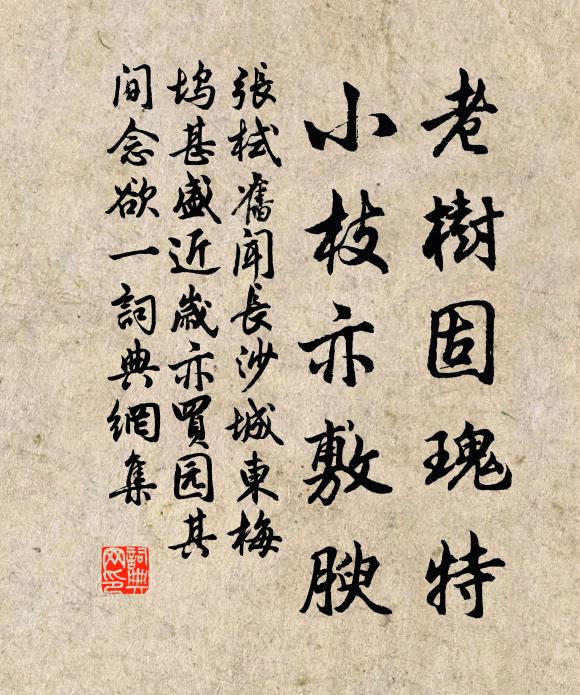 老樹固瑰特
小枝亦敷腴
張栻舊聞長沙城東梅
塢甚盛近歲亦買园其
间念欲一詞典網集
詞典
网印